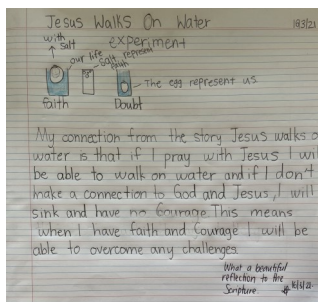 Jesus Walks On Water
18/3/21
experiment
with salt
our life
Salt represent
The egg represent us.
Faith
Doubt
My connection from the story Jesus walks o
water is that if I pray with Jesus I wil
be able to walk on water and if I don't
make a connection to God and Jesus, I will
sink and have no Courage. This means
when I have faith and Courage I will be
able to overcome any challenges.
What a beautiful
reflection to the
Scripture.
18/3/21.